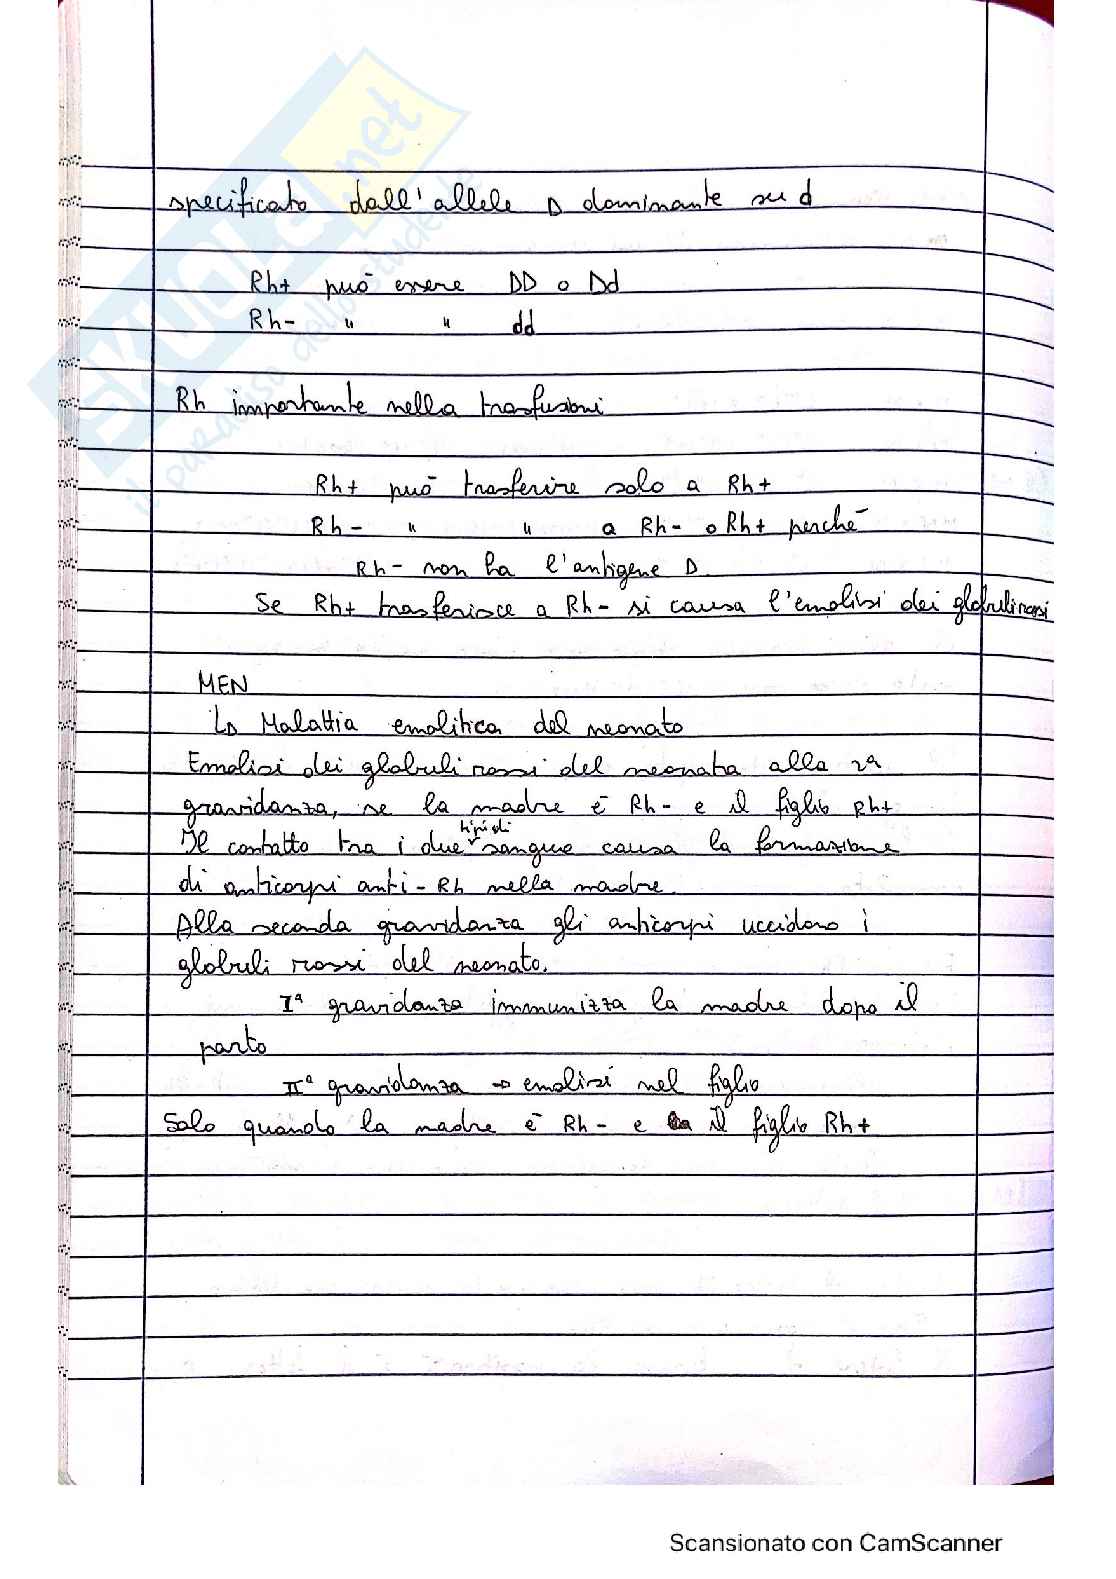 specificato dall'allele D dominante su d
Rh+ può essere DD o Dd
Rh- " " dd
Rh importante nella trasfusioni
Rh+ può trasferire solo a Rh+
Rh- " " a Rh- o Rh+ perché
Rh- non ha l'antigene D
Se Rh+ trasferisce a Rh- si causa l'emolisi dei globuli rossi
MEN
↳ Malattia emolitica del neonato
Emolisi dei globuli rossi del neonata alla 2ª
gravidanza, se la madre è Rh- e il figlio Rh+
Il contatto tra i due tipi di sangue causa la formazione
di anticorpi anti-Rh nella madre.
Alla seconda gravidanza gli anticorpi uccidono i
globuli rossi del neonato.
Iª gravidanza immunizza la madre dopo il
parto
IIª gravidanza → emolisi nel figlio
Solo quando la madre è Rh- e il figlio Rh+
SKUOLA.net
il paradiso dello studente
Scansionato con CamScanner